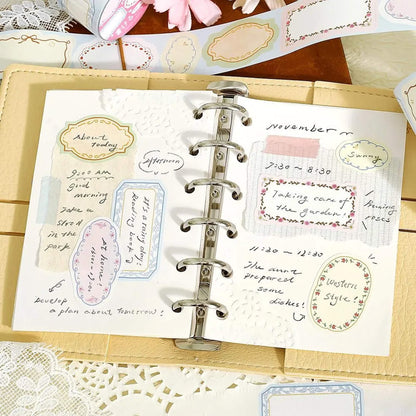 About
Today
Afternoon
9:00 AM
Good
morning
Take a
Strod
in the
park
It's a rainy day.
Reading books
At home!
Develop
a plan about tomorrow!
november
Sunny
7:30 ~ 8:30
Taking care of
the Garden!
roses
11:30 ~ 12:30
The aunt
prepared
some
dishes!
Western
Style!